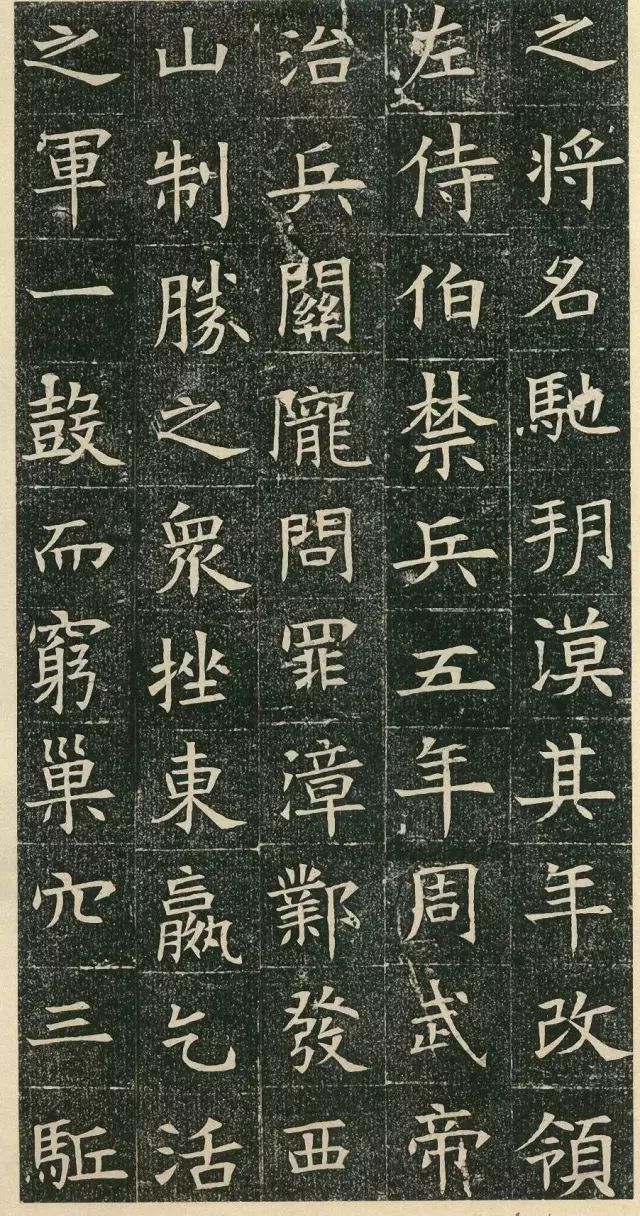 之将名馳朔漠其年改領
左侍伯禁兵五年周武帝
治兵關隴問罪漳鄴發西
山制勝之衆挫東嬴乞活
之軍一鼓而窮巢穴三駈